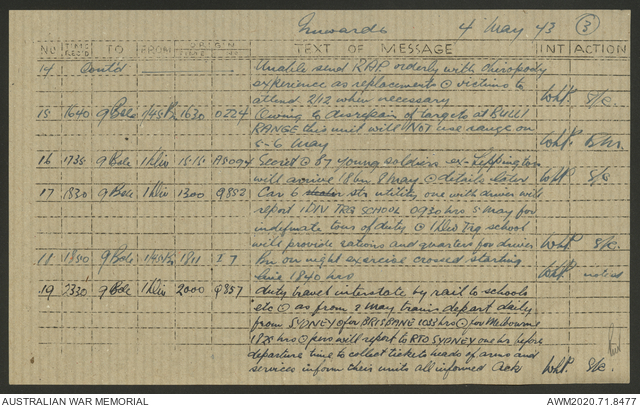 Inwards 4 May 43 (3)
NO TIME REC'D TO FROM ORIGIN TIME TEXT OF MESSAGE INT ACTION
14 Contd Unable send RAP orderly with chiropody
experience as replacement @ victims to
attend 2/12 when necessary Whf. S/c.
15 1640 9 Bde 1630 0224 Owing to disrepair of targets at BULLI
RANGE this unit will NOT use range on
5-6 May Whf. Bm.
16 1735 9 Bde 1 Div 1515 Secret @ 87 young soldiers ex-
will arrive 8 May @ details later Whf. S/c.
17 1830 9 Bde 1 Div 1300 Q852 Car 5 str utility one with driver will
report 1 DIV TRG SCHOOL 0930 hrs 5 May for
indefinite tour of duty @ 1 Div Trg school
will provide rations and quarters for driver Whf. S/c.
18 1850 9 Bde I 7 Bn on night exercise crossed starting
line 1840 hrs Whf. noted
19 2330 9 Bde 1 Div 2000 Q857 duty travel interstate by rail to schools
etc @ as from 2 May trains depart daily
from SYDNEY @ for BRISBANE 1035 hrs @ for Melbourne
1825 hrs @ pers will report to RTO SYDNEY one hr before
departure time to collect tickets heads of arms and
services inform their units all informed Ack Whf. S/c.
AUSTRALIAN WAR MEMORIAL AWM2020.71.8477